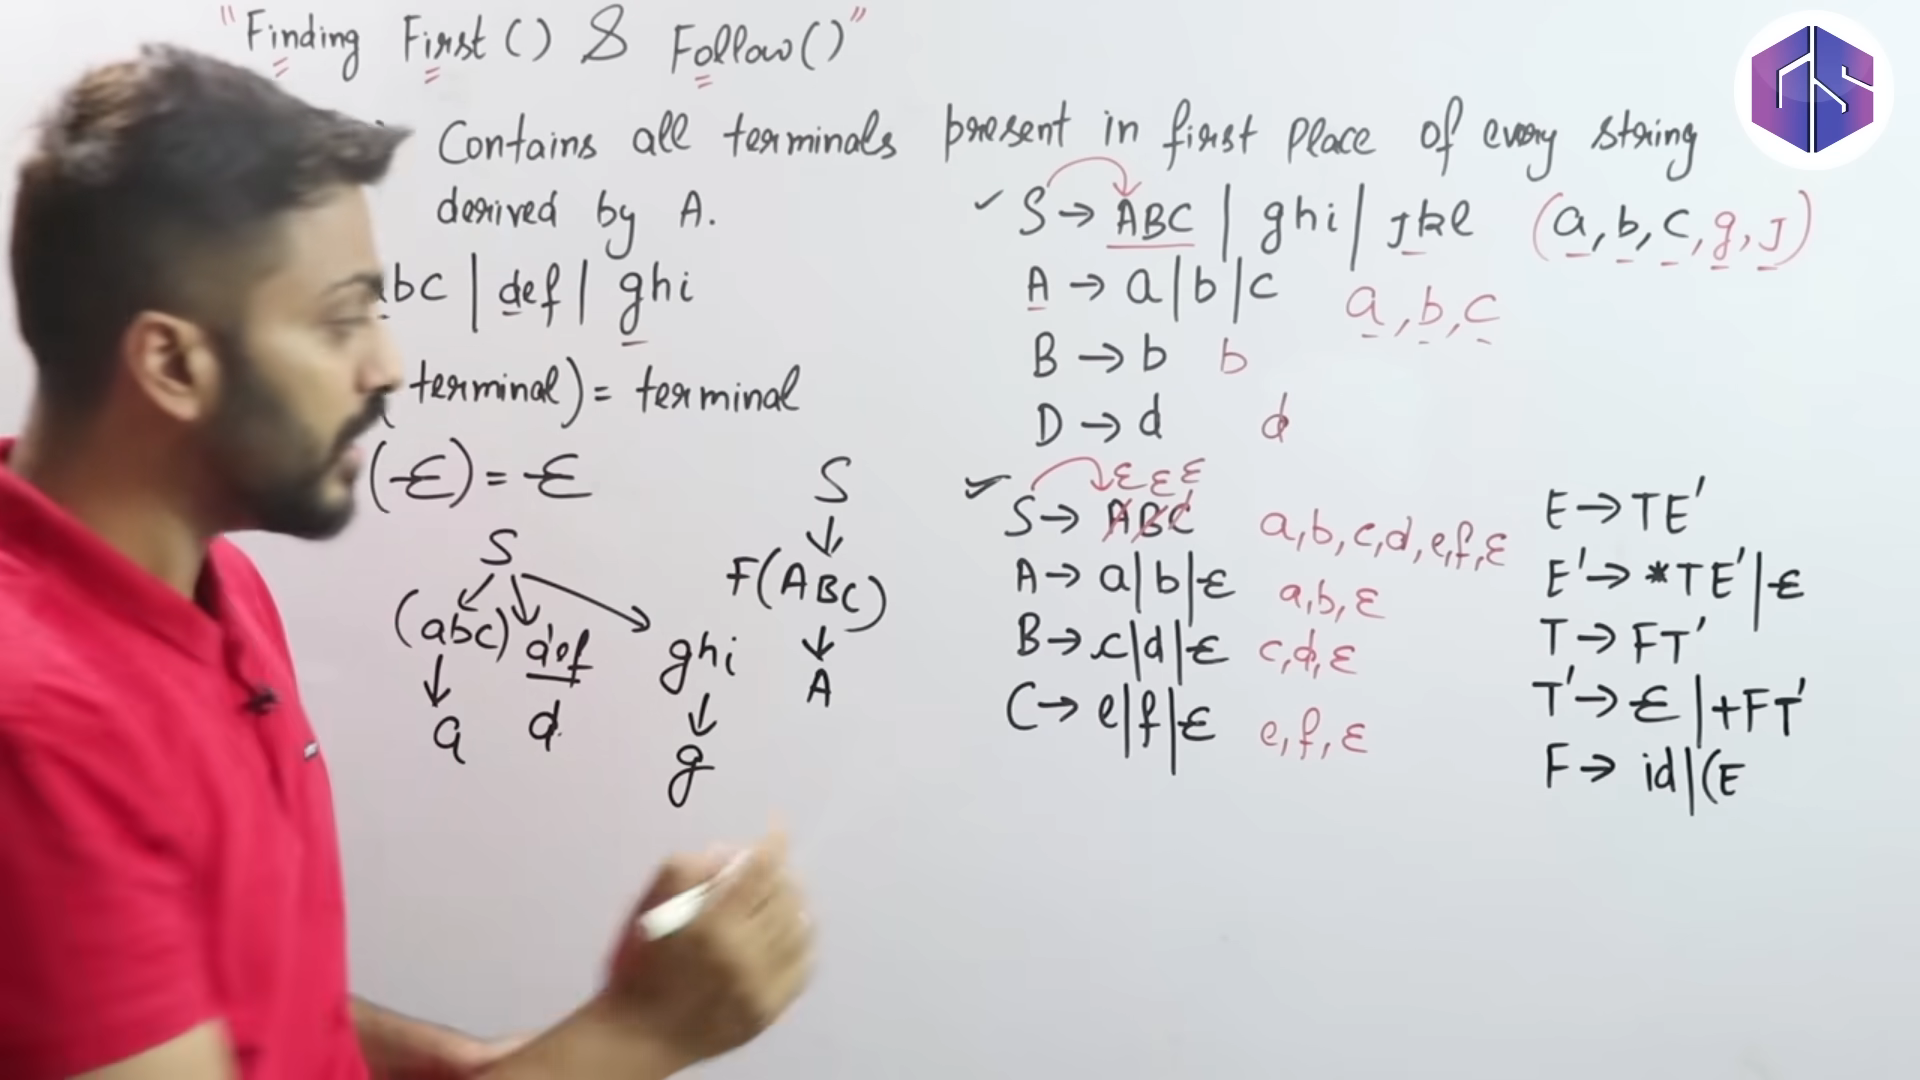 "Finding First() & Follow()"
Contains all terminals present in first place of every string
derived by A.
bc | def | ghi
(terminal) = terminal
(ε) = ε
S
(abc) def ghi
a d g
S
F(ABC)
A
S → ABC | ghi | jkl (a, b, c, g, j)
A → a | b | c a, b, c
B → b b
D → d d
ε ε ε
S → ABC a, b, c, d, e, f, ε
A → a | b | ε a, b, ε
B → c | d | ε c, d, ε
C → e | f | ε e, f, ε
E → TE'
E' → *TE' | ε
T → FT'
T' → ε | +FT'
F → id | (E